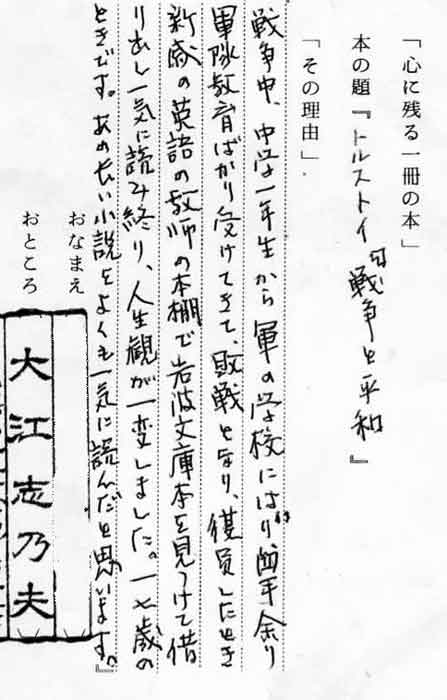 「心に残る一冊の本」
本の題『トルストイ「戦争と平和』
「その理由」
戦争中、中学一年生から軍の学校にはいり、四年余り
軍隊教育ばかり受けてきて、敗戦となり、復員したとき
新感の英語の教師の本棚で岩波文庫本を見つけて借
り出し一気に読み終り、人生観が一変しました。一七歳の
ときです。あの長い小説をよくも一気に読んだと思います。』
おなまえ
おところ
大江志乃夫